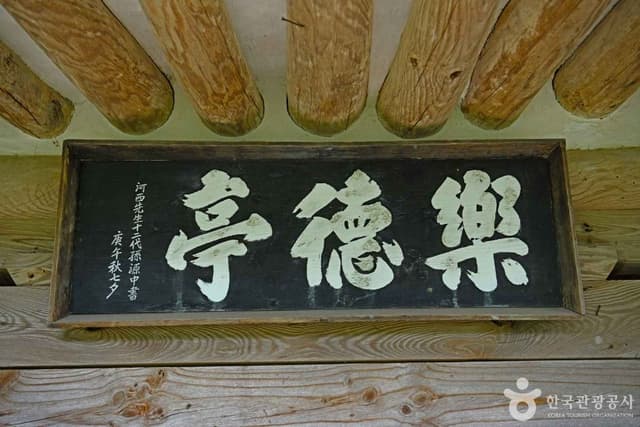 樂德亭
河西先生十三代孫源中書
庚午秋七夕
한국관광공사
KOREA TOURISM ORGANIZATION